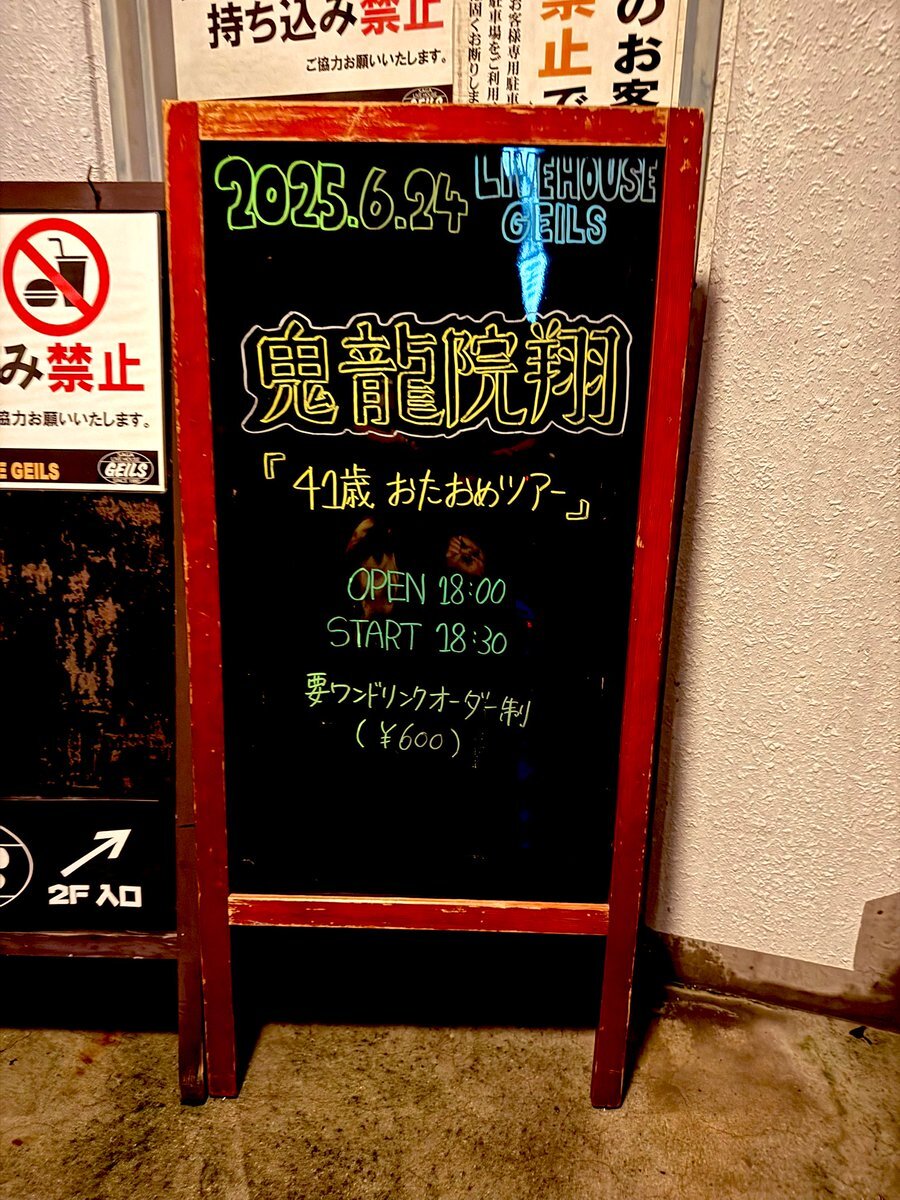 持ち込み禁止
ご協力お願いいたします。
お客様専用駐車
駐車場をご利用
固くお断りしま
禁止で
のお客
2025.6.24
LIVEHOUSE
GEILS
鬼龍院翔
『41歳 おたおめツアー』
OPEN 18:00
START 18:30
要ワンドリンクオーダー制
(¥600)
み禁止
協力お願いいたします。
E GEILS
GEILS
2F 入口